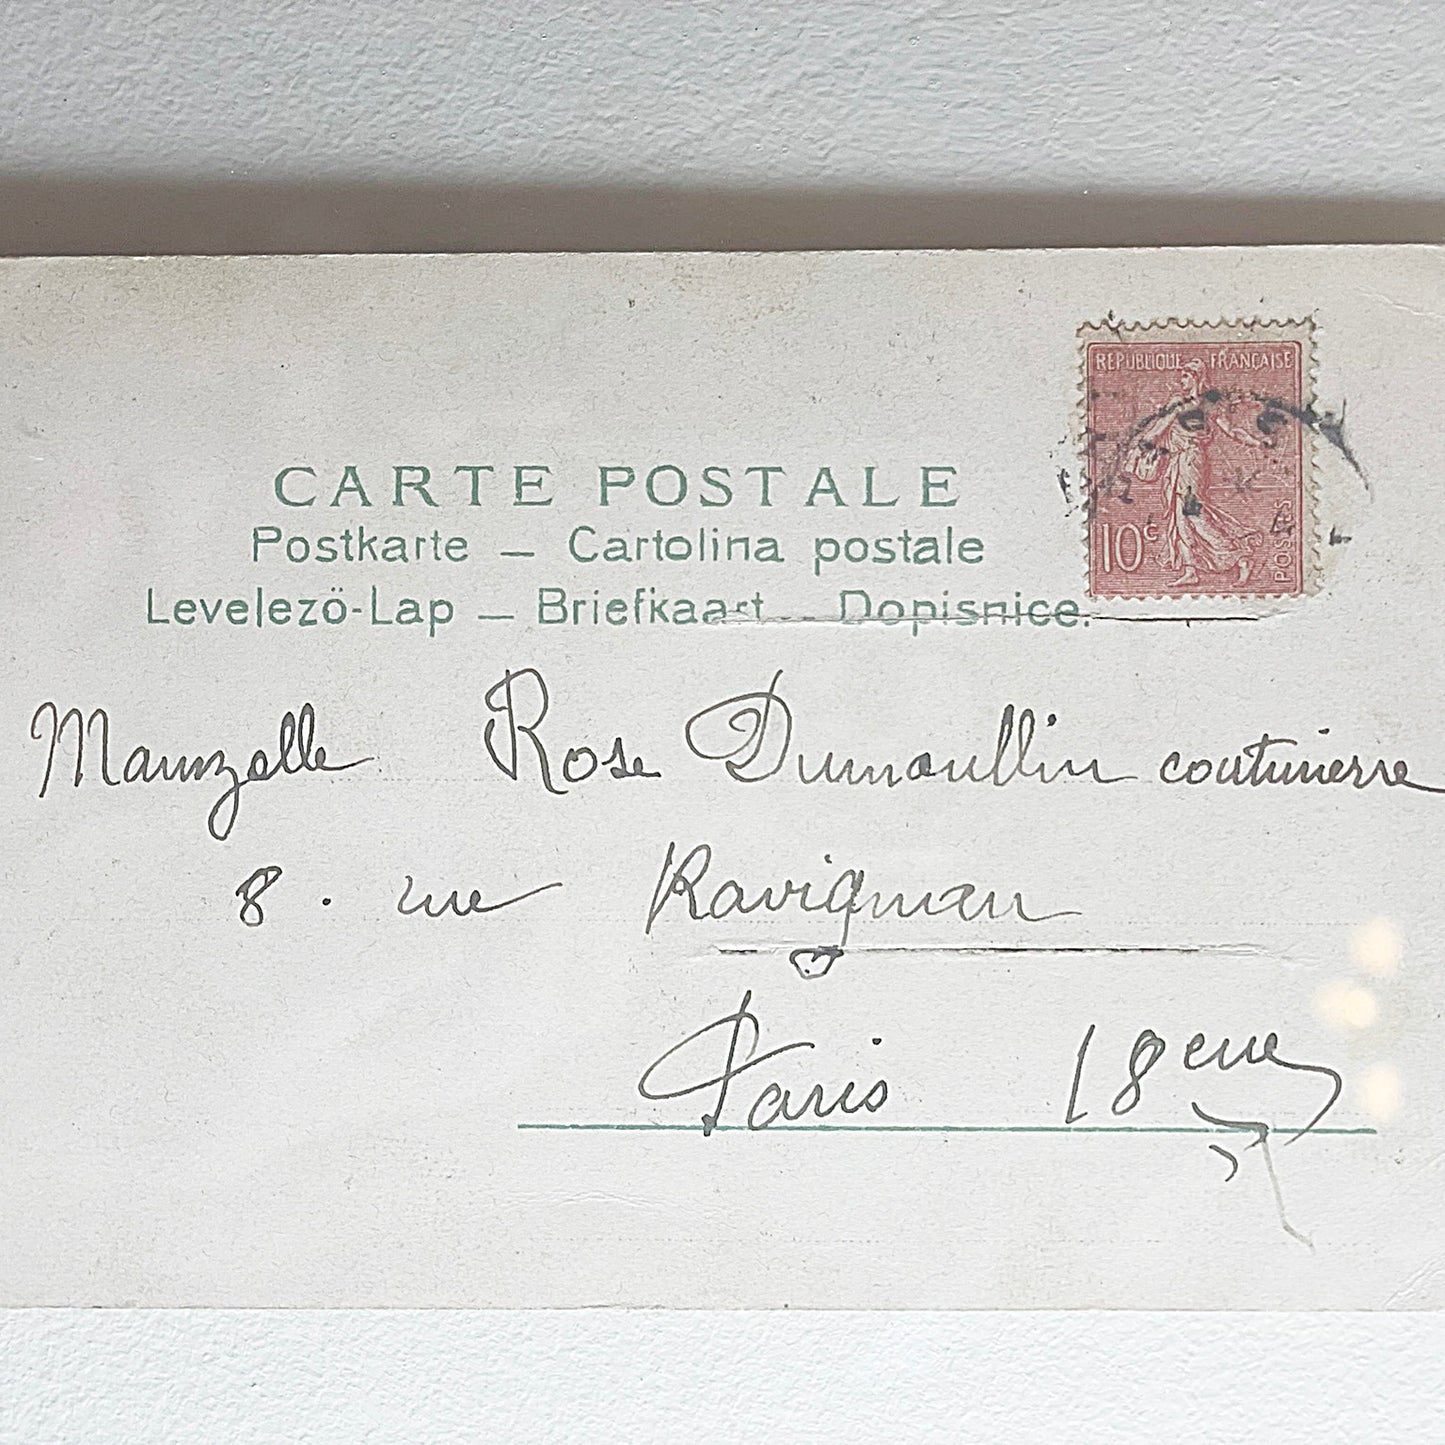 REPUBLIQUE FRANÇAISE
10c
POSTES
CARTE POSTALE
Postkarte — Cartolina postale
Levelezö-Lap — Briefkaart — Dopisnice.
Mamzelle Rose Dumoullin couturierre
8. rue Ravignan
Paris 18eme